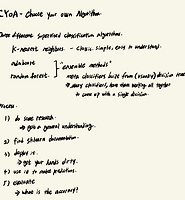 CYOA - Choose your own Algorithm.
Three different supervised classification algorithms.
K-nearest neighbors. - Classic, simple, easy to understand.
adaboost
random forest.
"ensemble methods"
meta classifiers built from (usually) decision trees
→ many classifiers, have them working all together
to come up with a single decision.
Process:
1) do some research.
→ get a general understanding.
2) find sklearn documentation.
3) deploy it.
→ get your hands dirty.
4) use it to make predictions.
5) evaluate
→ what is the accuracy?